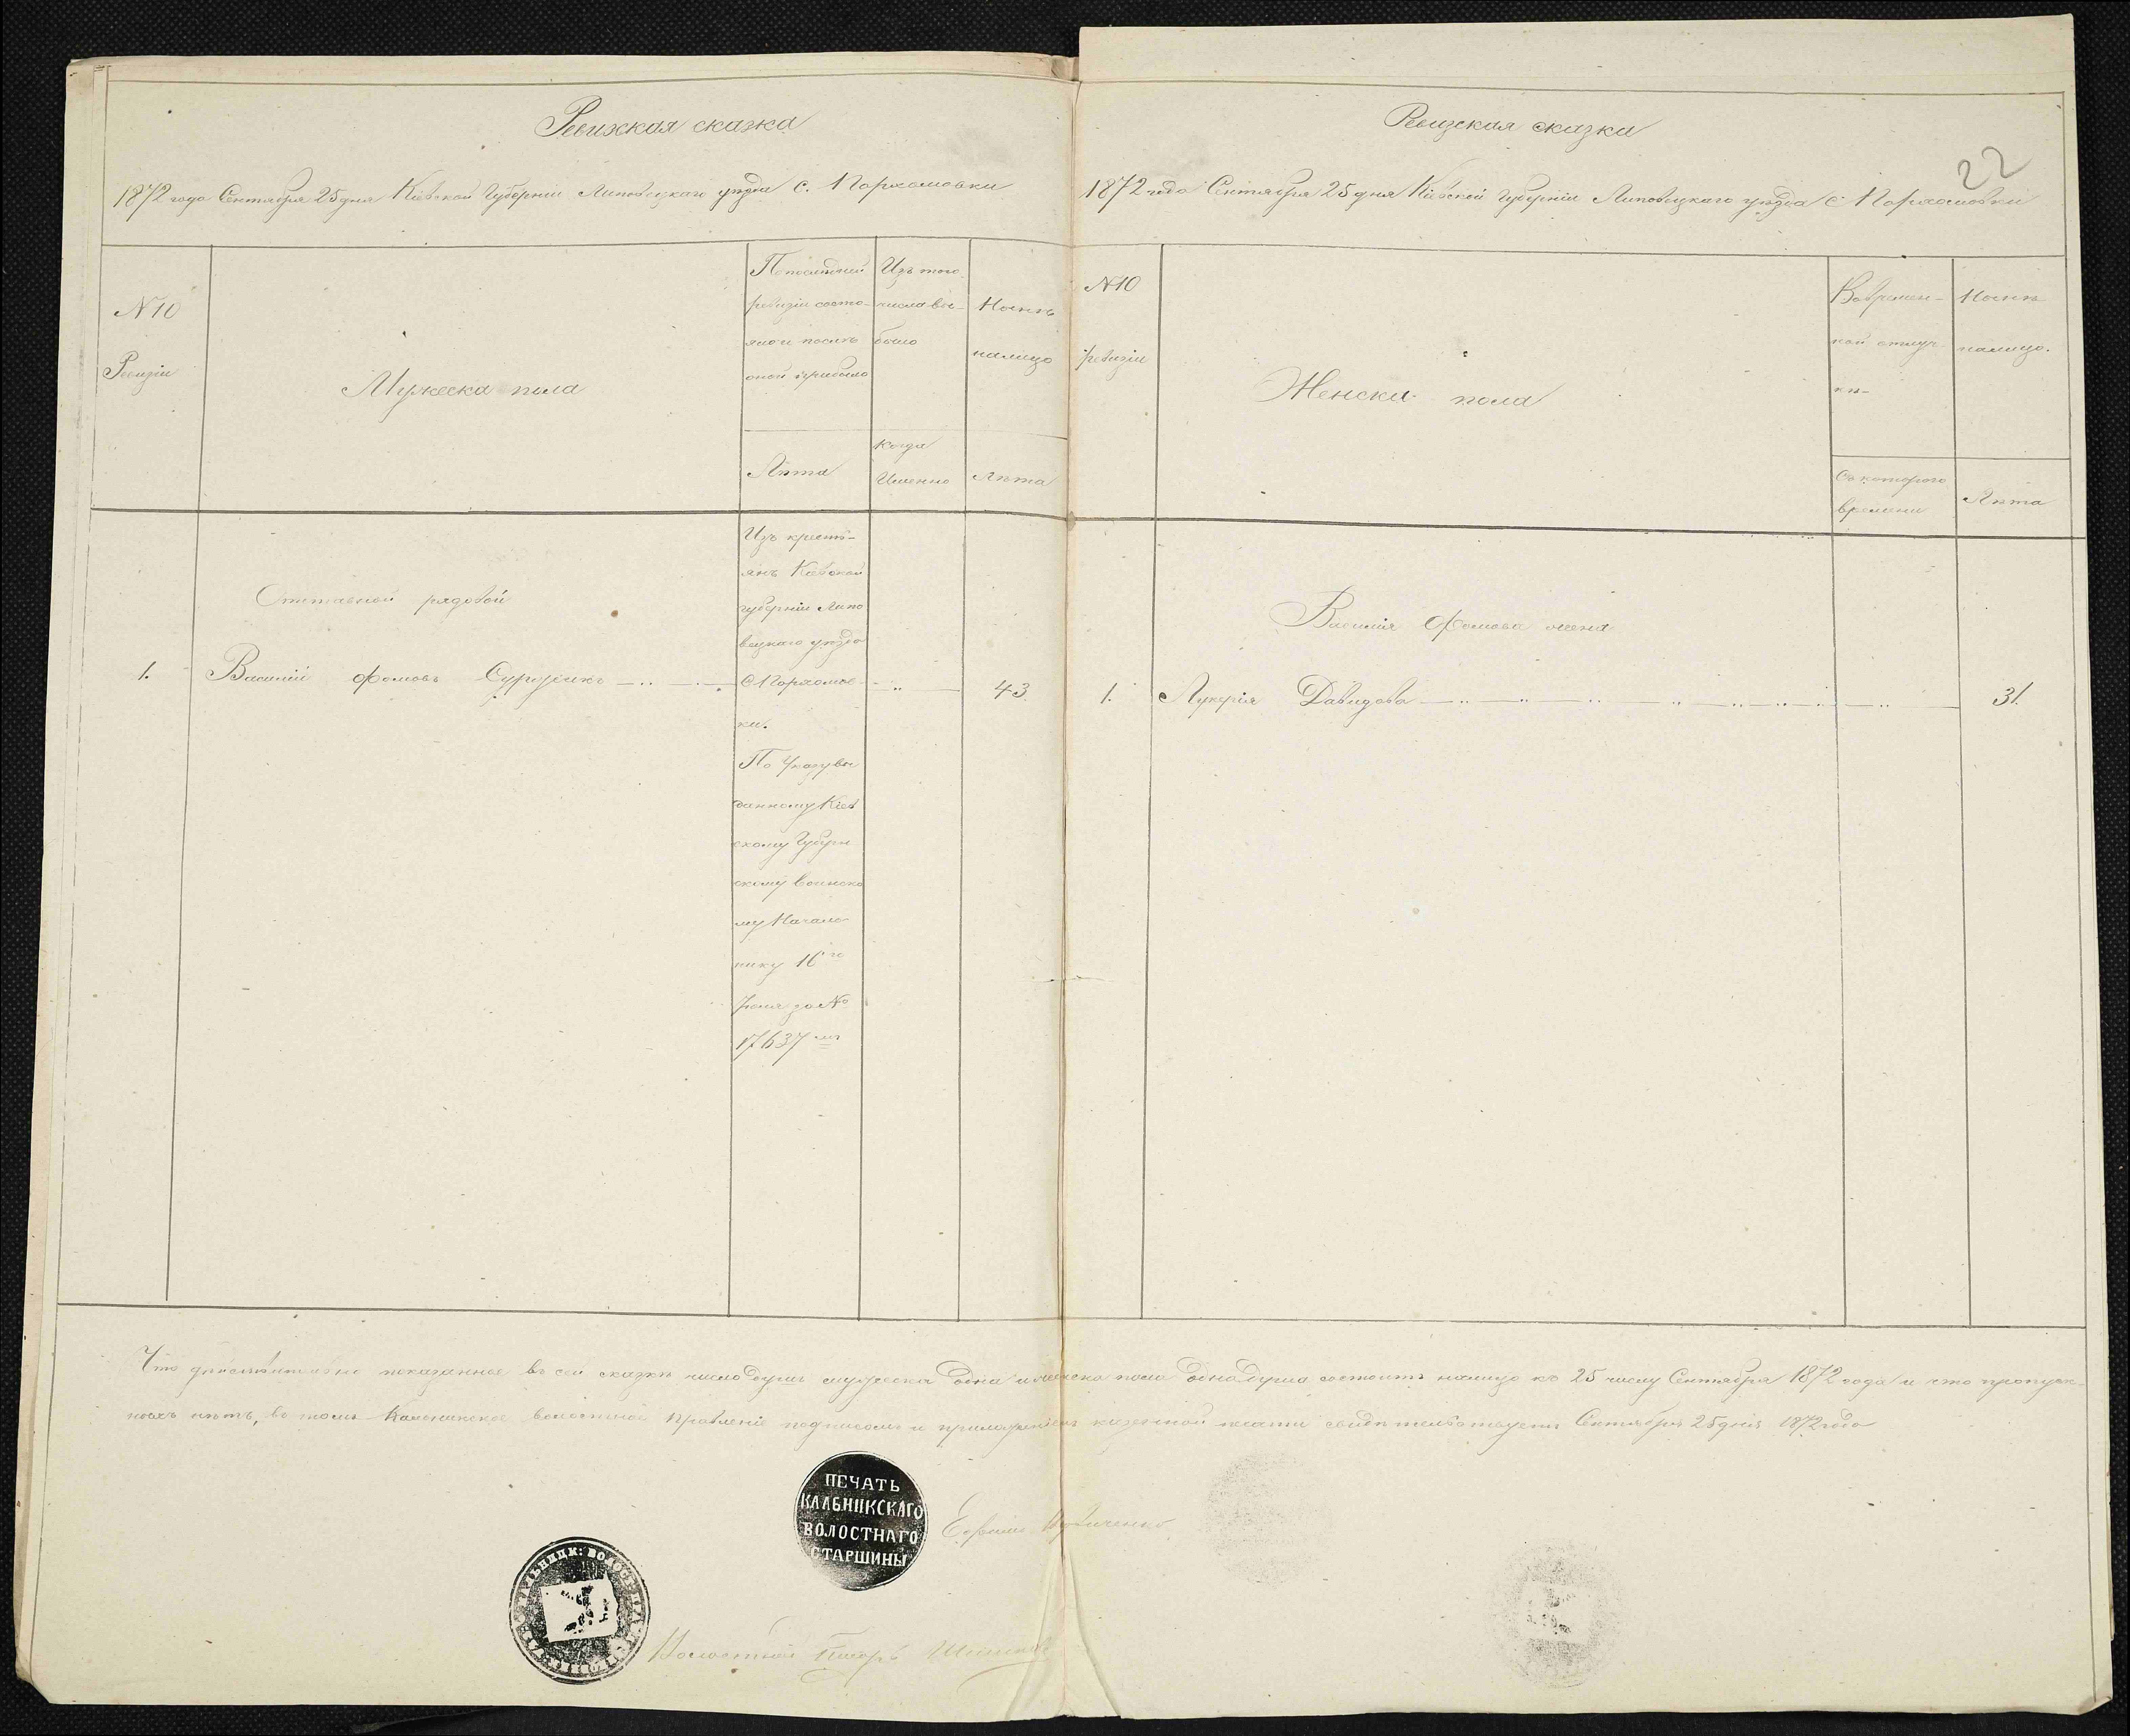 Ревизская сказка
1872 года Сентября 25 дня Кіевской Губерніи Липовецкаго уѣзда с. Пархомовки
№10
Ревизіи
Мужеска пола
По последней
ревизіи состо-
яло и послѣ
оной прибыло
Лѣта
Изъ того
числа вы-
было
Когда
Именно
Нынѣ
налицо
Лѣта
Отставной рядовой
1. Василій Фомовъ
Изъ кресть-
янъ Кіевской
губерніи Липо
вецкаго уѣзда
С. Пархомов-
ки.
По Указу вы
данному Кіев
скому Губерн
скому воинско
му Началь-
нику 16го
за №
17637мъ
43.
Ревизская сказка
22
1872 года Сентября 25 дня Кіевской Губерніи Липовецкаго уѣзда с Пархомовки
№10
ревизіи
Женска пола
Вовремен-
ной отлуч-
ки-
Съ котораго
времени
Нынѣ
налицо.
Лѣта
Василія Фомова жена
1. Лукерія Давидова
31.
Что действительно показанное въ сей сказкѣ число душъ мужеска одна и женска пола одна душа состоитъ налицо къ 25 числу Сентября 1872 года и что пропущен-
ныхъ нѣтъ, въ томъ волостное Правленіе подписомъ и приложеніемъ казенной печати свидѣтельствуетъ Сентября 25 дня 1872 года
ПЕЧАТЬ
КЛАБНИКСКАГО
ВОЛОСТНАГО
СТАРШИНЫ
Волостной Писарь